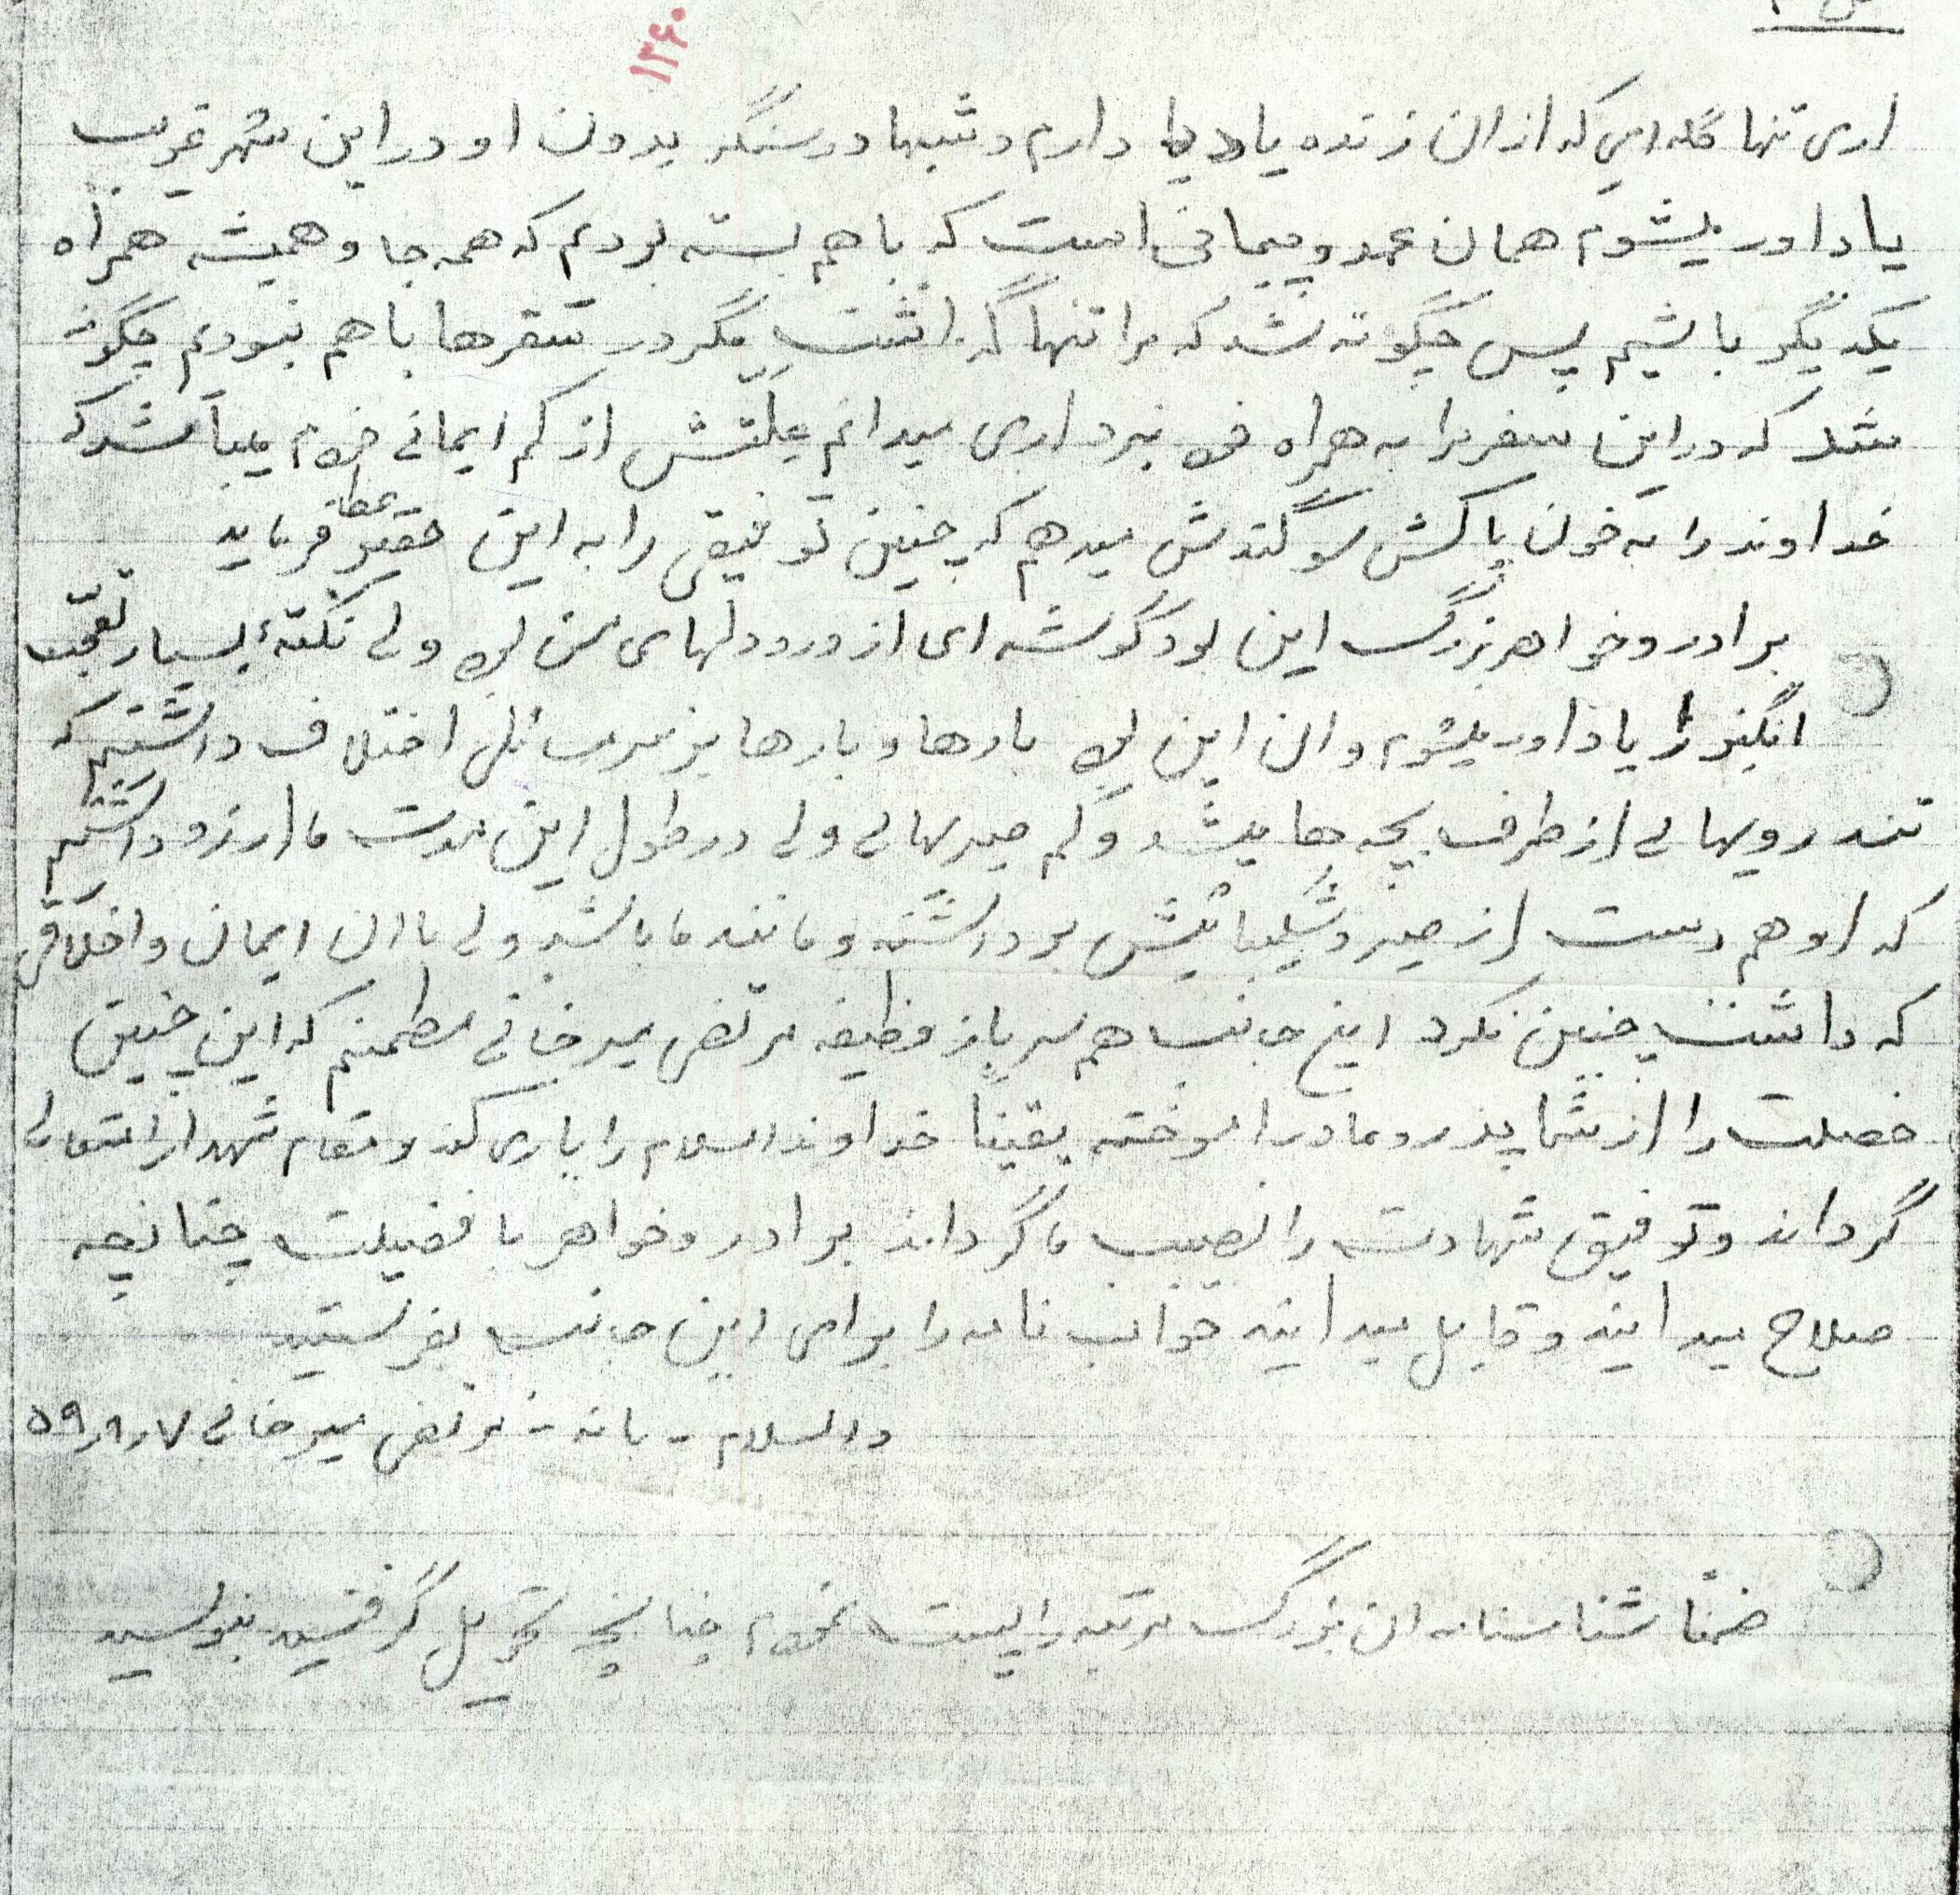 ۱۳۶۰
اری تنها گله ای که از ان زنده یاد دارم و شبها در سنگر بدون او در این شهر غریب
یاداور میشوم همان عهد و پیمانی است که با هم بسته بودیم که همه جا و همیشه همراه
یکدیگر باشیم پس چگونه شد که مرا تنها گذاشت مگر در سفرها با هم نبودیم چگونه
شد که در این سفر مرا به همراه خود نبرد اری میدانم علتش از کم ایمانی خودم میباشد که
خداوند را به خون پاکش سوگندش میدهم که چنین توفیقی را به این حقیر عطا فرماید
برادر و خواهر بزرگ این بود گوشه ای از درد دلهای من بود ولی نکتهٔ بسیار تعجب
انگیز را یاداور میشوم و ان این بود بارها و بارها بر سر مسائلی اختلاف داشتیم که
تند رویهائی از طرف بچه ها میشد و کم صبریهائی ولی در طول این مدت ما ارزو داشتیم
که او هم دست از صبر و شکیبائیش برداشته و مانند ما باشد ولی با ان ایمان و اخلاقی
که داشت چنین نکرد اینجانب هم سرباز وظیفه مرتضی میرخانی مطمئنم که این چنین
خصلت را از شما پدر و مادر اموخته یقیناً خداوند اسلام را یاری کند و مقام شهدا را متعالی
گرداند و توفیق شهادت را نصیب ما گرداند برادر و خواهر با فضیلت چنانچه
صلاح میدانید و قابل میدانید جواب نامه را برای این جانب بفرستید
والسلام - بانه - مرتضی میرخانی ۵۹٫۸٫۷
ضمناً شناسنامه ان بزرگ مرتبه را پست نمودم چنانچه تحویل گرفتید بنویسید